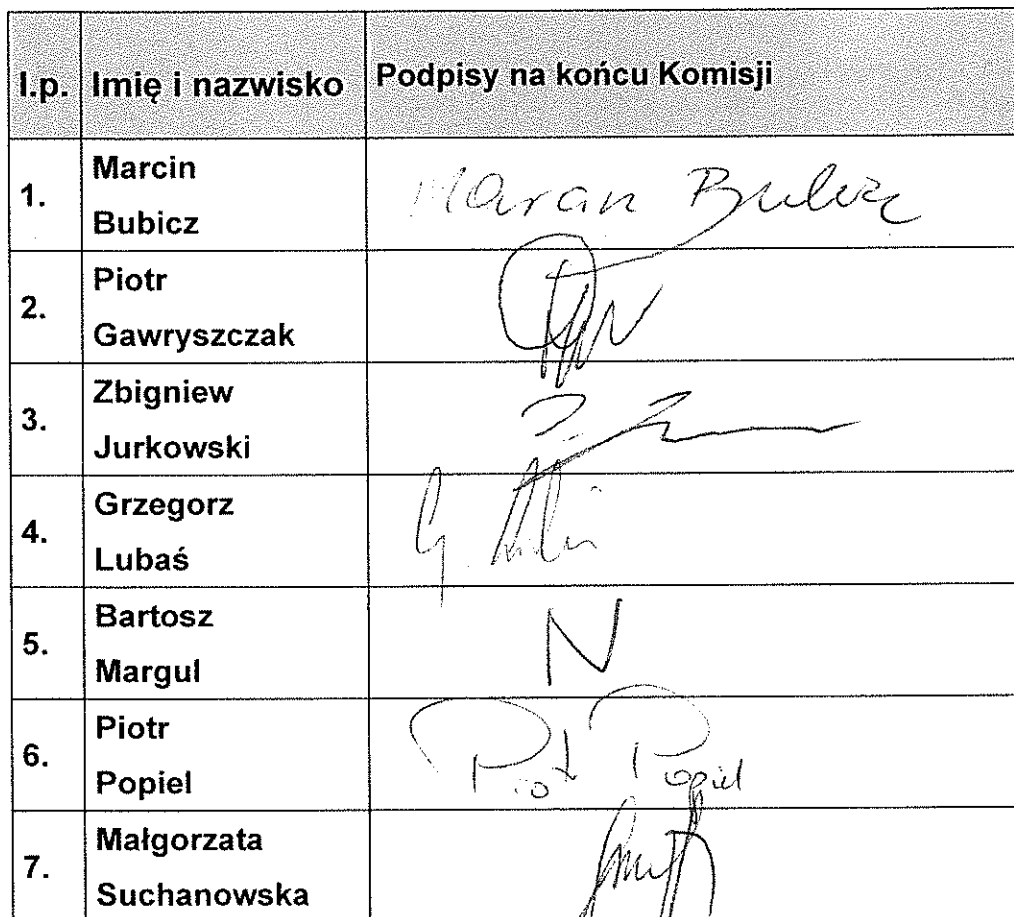 l.p. Imię i nazwisko Podpisy na końcu Komisji
1. Marcin
Bubicz
Marcin Bubicz
2. Piotr
Gawryszczak
N
3. Zbigniew
Jurkowski
4. Grzegorz
Lubaś
G.
5. Bartosz
Margul
N
6. Piotr
Popiel
Piotr Popiel
7. Małgorzata
Suchanowska